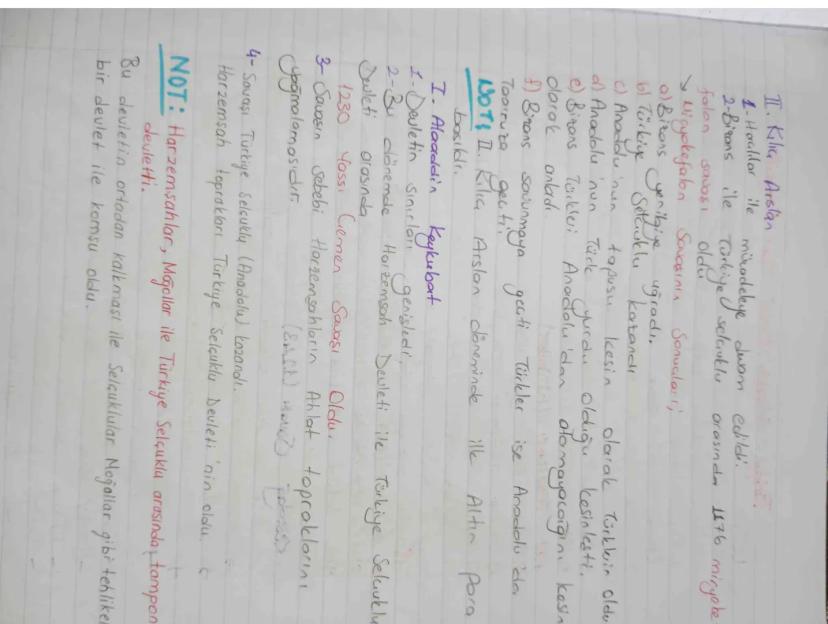 II. Kılıç Arslan
1- Haçlılar ile mücadeleye devam edildi.
2- Bizans ile Türkiye Selçuklu arasında 1176 miryoke
falon savaşı oldu
↘ Miryokefalon Savaşının Sonuçları;
a) Bizans yenilgiye uğradı.
b) Türkiye Selçuklu kazandı
c) Anadolu'nun tapusu kesin olarak Türklerin oldu
d) Anadolu'nun Türk yurdu olduğu kesinleşti.
e) Bizans Türkleri Anadolu'dan atamayacağını kesin
olarak anladı
f) Bizans savunmaya geçti Türkler ise Anadolu'da
Taarruza geçti.
NOT: II. Kılıç Arslan döneminde ilk Altın Para
basıldı.
I. Alaaddin Keykubat
1- Devletin sınırları genişledi.
2- Bu dönemde Harzemşah Devleti ile Türkiye Selçuklu
Devleti arasında
1230 Yassı Çemen Savaşı Oldu.
3- Savaşın sebebi Harzemşahların Ahlat topraklarını
yağmalamasıdır.
4- Savaşı Türkiye Selçuklu (Anadolu) kazandı.
Harzemşah toprakları Türkiye Selçuklu Devleti'nin oldu.
NOT: Harzemşahlar, Moğollar ile Türkiye Selçuklu arasında tampon
devletti.
Bu devletin ortadan kalkması ile Selçuklular Moğollar gibi tehlikeli
bir devlet ile komşu oldu.